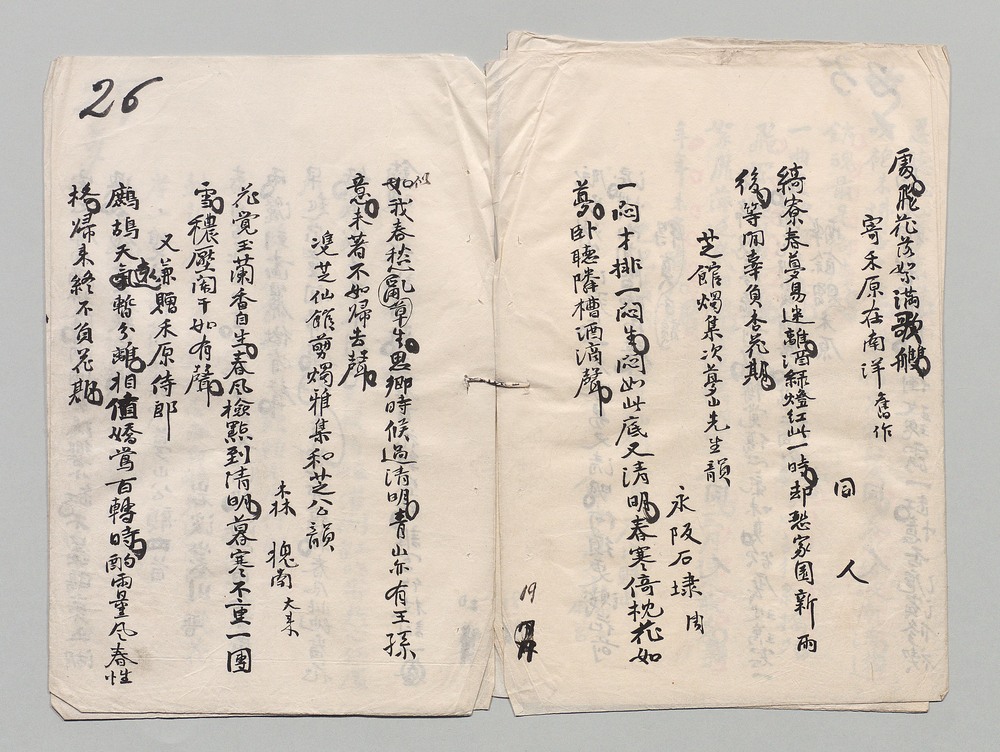 處飛花落絮滿歌艭
寄禾原在南洋舊作
同人
綺寮春夢易迷離酒綠燈紅此一時却愁家園新雨
後等閒辜負杏花期
芝館燭集次夢山先生韻
永阪石埭 周
一悶才排一悶生悶如此底又清明春寒倚枕花如
夢臥聽隣槽酒滴聲
19
26
似
如我春愁亂草生思鄉時候過清明青山亦有王孫
意未著不如歸去聲
芝仙館剪燭雅集和芝公韻
森 槐南 大來
花覺玉蘭香自生春風檢點到清明暮寒不重一團
雪穠壓闌干如有聲
又兼贈禾原侍郎
遠
鷓鴣天氣暫分離相值嬌鶯百轉時酌雨量風春性
格歸來終不負花期